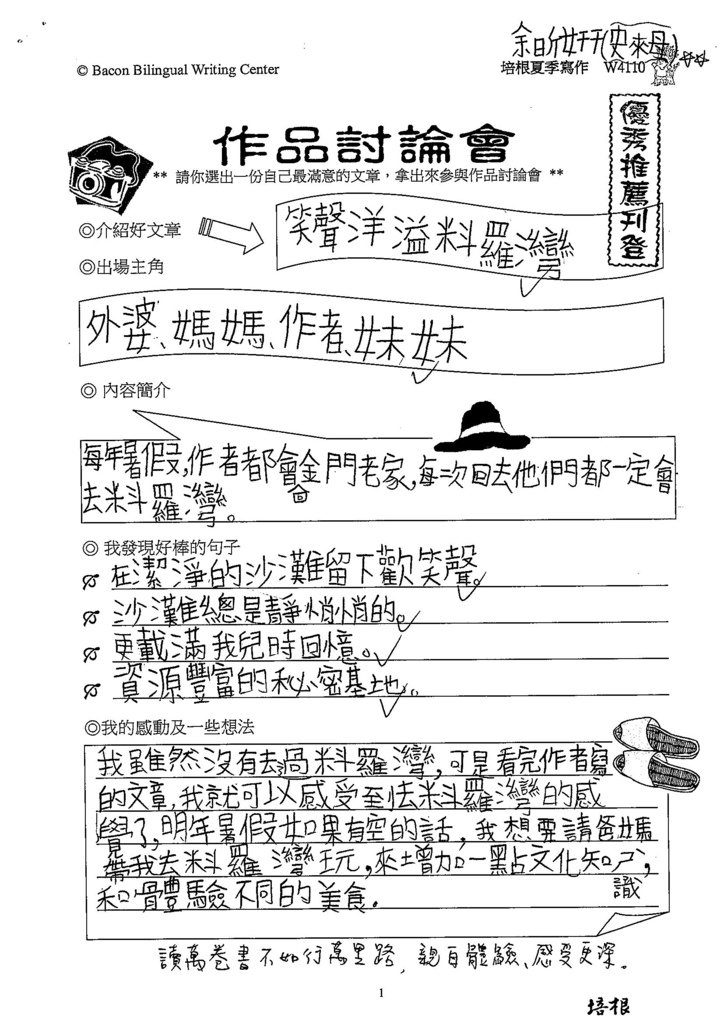 余昕妍(史來母)
© Bacon Bilingual Writing Center
培根夏季寫作 W4110
優秀推薦刊登
作品討論會
** 請你選出一份自己最滿意的文章，拿出來參與作品討論會 **
◎介紹好文章
笑聲洋溢料羅灣
◎出場主角
外婆、媽媽、作者、妹妹
◎ 內容簡介
每年暑假,作者都會回金門老家,每次回去他們都一定會
去料羅灣。
◎ 我發現好棒的句子
在潔淨的沙灘留下歡笑聲。
沙灘總是靜悄悄的。
更載滿我兒時回憶。
資源豐富的秘密基地。
◎我的感動及一些想法
我雖然沒有去過料羅灣,可是看完作者寫
的文章,我就可以感受到去料羅灣的感
覺了,明年暑假如果有空的話,我想要請爸媽
帶我去料羅灣玩,來增加一點文化知識,
和體驗不同的美食.
讀萬卷書不如行萬里路,親自體驗、感受更深。
1
培根